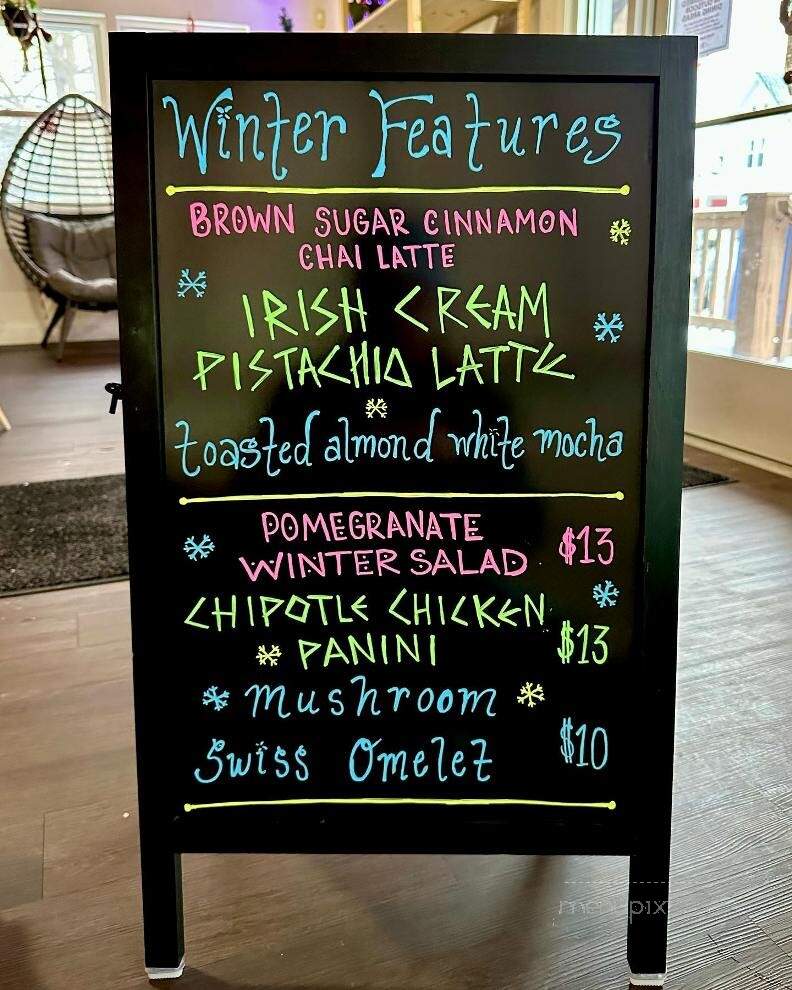 Winter Features
BROWN SUGAR CINNAMON
CHAI LATTE
IRISH CREAM
PISTACHIO LATTE
toasted almond white mocha
POMEGRANATE
WINTER SALAD $13
CHIPOTLE CHICKEN
PANINI $13
mushroom
Swiss Omelet $10
menupix